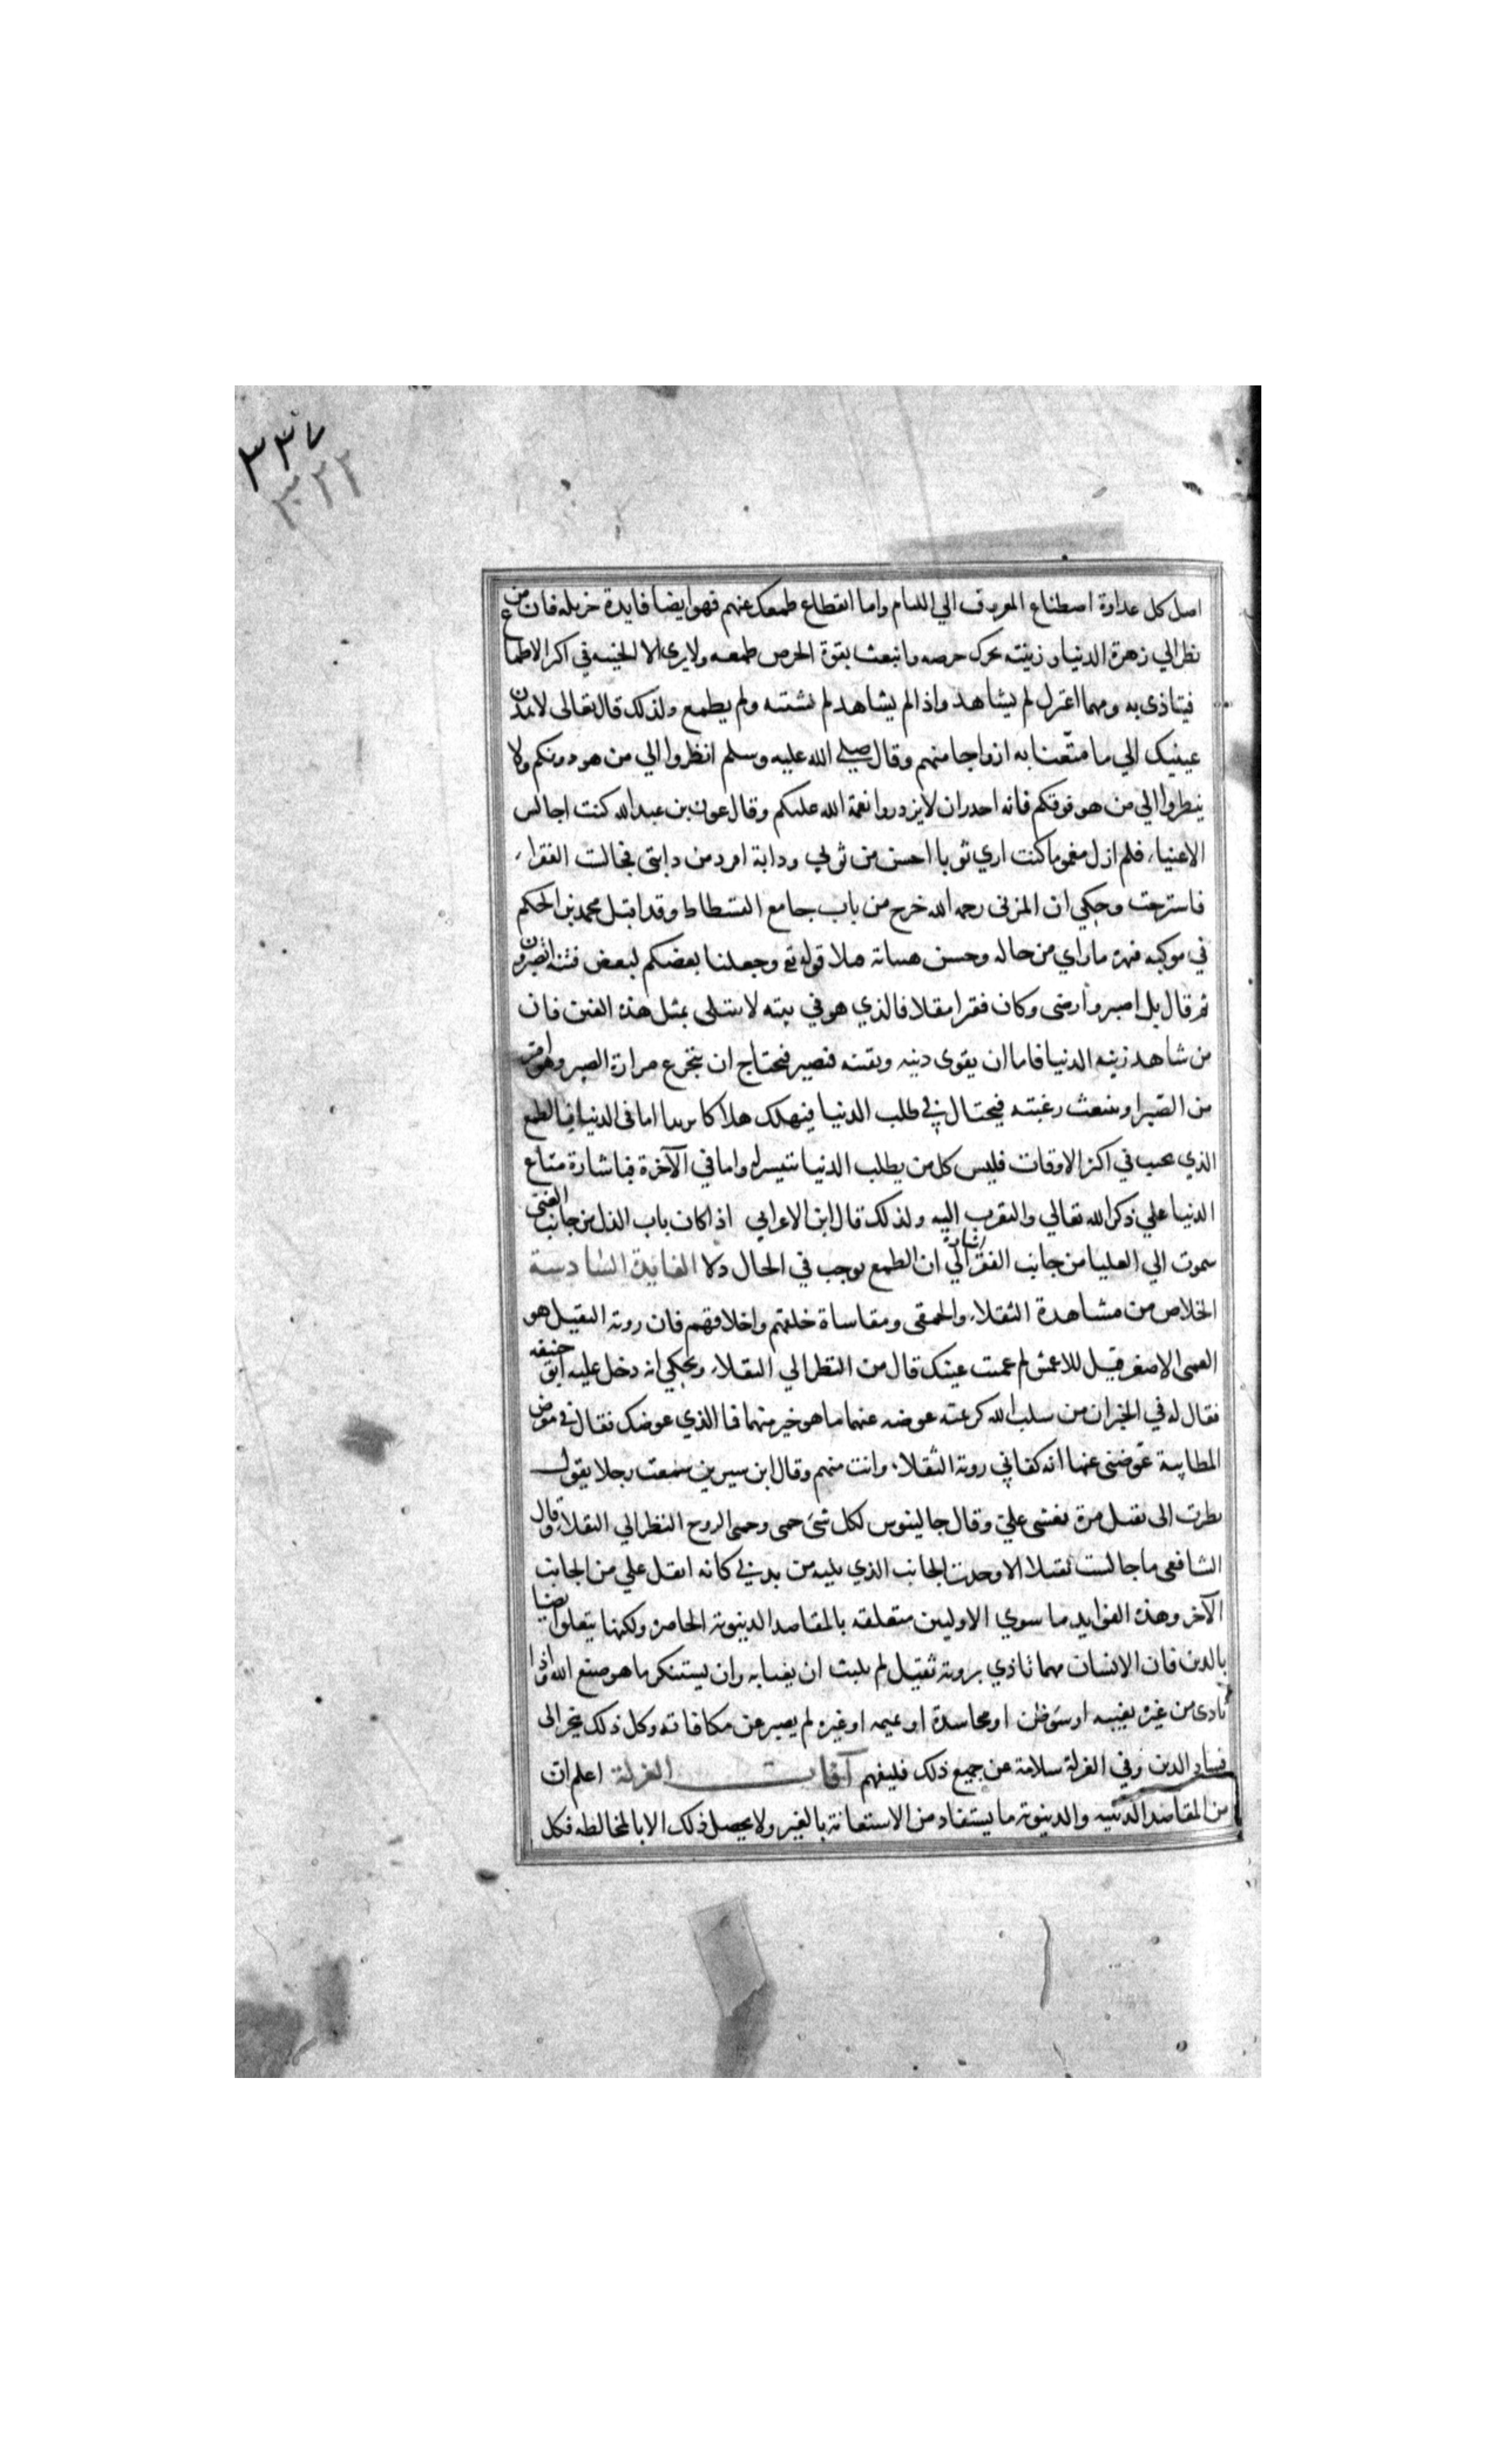 ٣٣٧
٣٢٢
اصل كل عداوة اصطناع المعروف الي اللئام واما انقطاع طمعك عنهم فهو ايضا فايدة جزيلة فان من
نظر الي زهرة الدنيا وزينته تحرك حرصه وانبعث بقوة الحرص طمعه ولا يرى الا الخيبة في اكثر الاطماع
فيتاذى به ومهما اعتزل لم يشاهد واذا لم يشاهد لم يشتبه ولم يطمع ولذلك قال تعالى لا تمدن
عينيك الي ما متّعنا به ازواجا منهم وقال صلي الله عليه وسلم انظروا الي من هو دونكم ولا
تنظروا الي من هو فوقكم فانه اجدر ان لا يزدروا نعمة الله عليكم وقال عون بن عبد الله كنت اجالس
الاغنياء فلم ازل مغموما كنت اري ثوبا احسن من ثوبي ودابة افره من دابتي فجالست الفقراء
فاسترحت وحكي ان المزني رحمه الله خرج من باب جامع الفسطاط وقد اقبل محمد بن الحكم
في موكبه فبهره ما راي من حاله وحسن هيئاته فتلا قوله تع وجعلنا بعضكم لبعض فتنة اتصبرون
ثم قال بل اصبر وارضى وكان فقيرا مقلا فالذي هو في بيته لا يبتلى بمثل هذه الفتن فان
من شاهد زينة الدنيا فاما ان يقوى دينه ويقينه فيصبر فيحتاج ان يتجرع مرارة الصبر وهو امر
من الصّبر او ينبعث رغبته فيحتال في طلب الدنيا فيهلك هلاكا مؤبدا اما في الدنيا فبالطمع
الذي يخيب في اكثر الاوقات فليس كل من يطلب الدنيا تتيسر له واما في الآخرة فباشارة متاع
الدنيا علي ذكر الله تعالي والتقرب اليه ولذلك قال ابن الاعرابي اذا كان باب الذل من جانب الغنى
سموت الي العليا من جانب الفقر اشارة الي ان الطمع يوجب في الحال ذلا الفايدة السّادسة
الخلاص من مشاهدة الثقلاء والحمقى ومقاساة خلقهم واخلاقهم فان روية الثقيل هو
العمى الاصغر قيل للاعمش لم عمشت عينك قال من النظر الي الثقلاء ويحكي انه دخل عليه ابو حنيفه
فقال له في الخبر ان من سلب الله كريمتيه عوضه عنهما ما هو خير منهما فما الذي عوضك فقال في معرض
المطايبة عوّضني عنهما انه كفاني روية الثقلاء وانت منهم وقال ابن سيرين سمعت رجلا يقول
نظرت الى ثقيل مرة فغشى عليّ وقال جالينوس لكل شيء حمى وحمى الروح النظر الي الثقلاء وقال
الشافعي ما جالست ثقيلا الا وجدت الجانب الذي يليه من بدني كانه اثقل علي من الجانب
الآخر وهذه الفوايد ما سوي الاوليين متعلقه بالمقاصد الدنيوية الحاضرة ولكنها يتعلق ايضا
بالدين فان الانسان مهما تاذي بروية ثقيل لم يلبث ان يغتابه وان يستنكر ما هو صنع الله واذا
تاذى من غيره بغيبة او سوء ظن او محاسدة او نميمة او غيره لم يصبر عن مكافاته وكل ذلك يجر الى
فساد الدين وفي العزلة سلامة عن جميع ذلك فليفهم آفات العزلة اعلم ان
من المقاصد الدينيه والدنيوية ما يستفاد من الاستعانة بالغير ولا يحصل ذلك الا بالمخالطه فكل